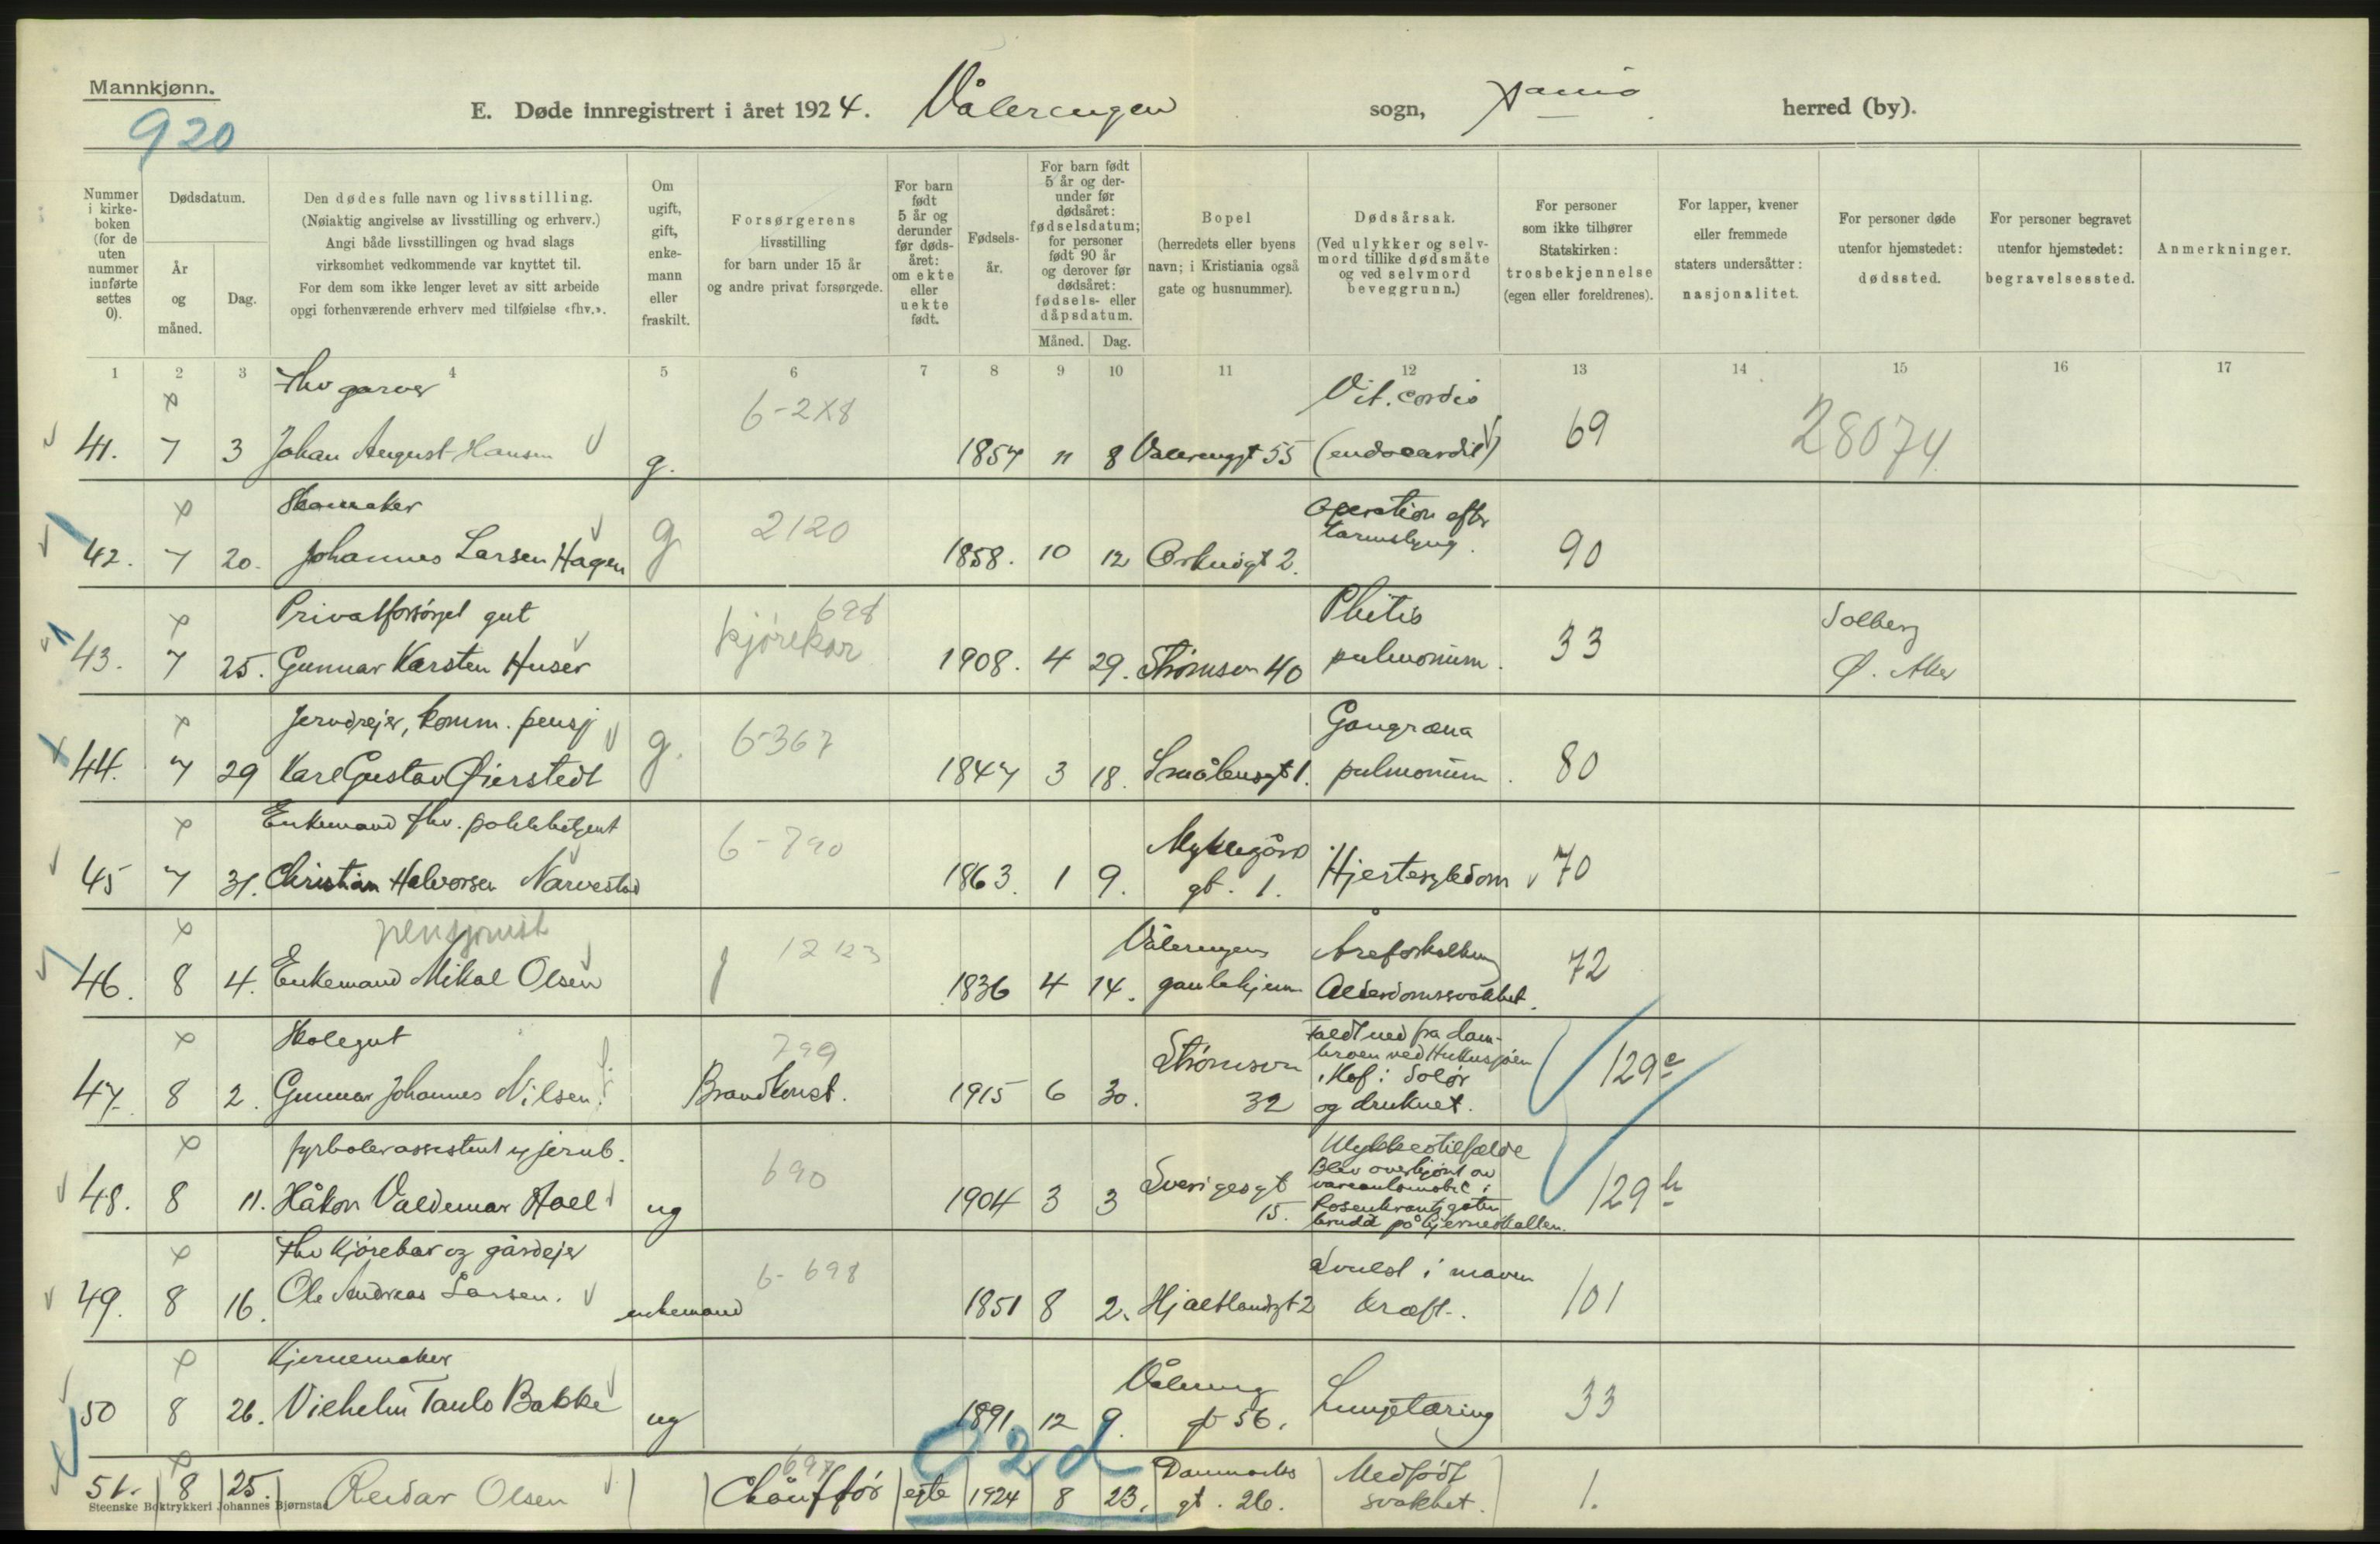 Mannkjønn.
920
E. Døde innregistrert i året 1924. Vålerengen sogn, herred (by).
Nummer i kirkeboken (for de uten nummer innførte settes 0).
Dødsdatum.
År og måned.
Dag.
Den dødes fulle navn og livsstilling.
(Nøiaktig angivelse av livsstilling og erhverv.)
Angi både livsstillingen og hvad slags
virksomhet vedkommende var knyttet til.
For dem som ikke lenger levet av sitt arbeide
opgi forhenværende erhverv med tilføielse «fhv.».
Om ugift, gift, enkemann eller fraskilt.
Forsørgerens
livsstilling
for barn under 15 år
og andre privat forsørgede.
For barn født 5 år og derunder før dødsåret: om ekte eller uekte født.
Fødselsår.
For barn født 5 år og derunder før dødsåret: fødselsdatum; for personer født 90 år og derover før dødsåret: fødsels- eller dåpsdatum.
Måned. Dag.
Bopel
(herredets eller byens
navn; i Kristiania også
gate og husnummer).
Dødsårsak.
(Ved ulykker og selvmord tillike dødsmåte
og ved selvmord
beveggrunn.)
For personer
som ikke tilhører
Statskirken:
trosbekjennelse
(egen eller foreldrenes).
For lapper, kvener
eller fremmede
staters undersåtter:
nasjonalitet.
For personer døde
utenfor hjemstedet:
dødssted.
For personer begravet
utenfor hjemstedet:
begravelsessted.
Anmerkninger.
1 2 3 4 5 6 7 8 9 10 11 12 13 14 15 16 17
Fhv garver 6-2X8 Vit. cordis
41. 7 3 Johan August Hansen g. 1857 11 8 Vålerenggt 55 (endocardit) 69 28074
Skomaker 2120 Operation efter
42. 7 20. Johannes Larsen Hagen g 1858. 10 12 Orknøgt 2. tarmslyng. 90
Privatforsørget gut 698 Phitis Solberg
43. 7 25. Gunnar Karsten Huser kjørekar 1908. 4 29. Strømsvn 40 pulmonum. 33 Ø. Aker
Jerndrejer, komm. pensj 6-367 Gangræna
44. 7 29 Karl Gustav Gierstedt g. 1847 3 18. Smålensgt 1. pulmonum. 80
Enkemand fhv. politibetjent 6-790 Myklegård
45 7 31. Christian Halvorsen Narvestad 1863. 1 9. gt. 1. Hjertesykdom 70
pensjonist 12123 Vålerengens Åreforkalkning
46. 8 4. Enkemand Mikal Olsen 1836 4 14. gamlehjem Alderdomssvakhet. 72
Skolegut 799 Strømsvn Faldt ned fra dambroen ved
47. 8 2. Gunnar Johannes Nilsen Brandkonst. 1915 6 30. 32 Hof i Solør og druknet. 129e
fyrbøterassistent v jernb. 690 Ulykkestilfælde
48. 8 11. Håkon Valdemar Hoel ug 1904 3 3 Sverigesgt 15. Blev overkjørt av vareautomobil i Rosenkrantzgaten brudd på hjerneskallen. 129h
Fhv kjørekar og gårdejer 6-698 Svulst i maven
49. 8 16. Ole Andreas Larsen. enkemand 1851 8 2. Hjaltlandsgt 2 kræft. 101
Kjernemaker Vålereng
50 8 26. Vilhelm Paulo Bakke ug 1891 12 9. gt 56. Lungetæring 33
02d
697 Danmarks Medfødt
51. 8 25. Reidar Olsen Chauffør egte 1924 8 23. gt. 26. svakhet. 1.
Steenske Boktrykkeri Johannes Bjørnstad